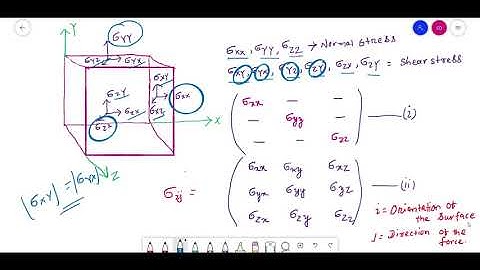 Y
σyy
σyz σyx
σxy
σxy
σxx
σzx
σxz
σzz
X
Z
|σxy| = |σyx|
σxx, σyy, σzz → Normal stress
σxy, σyx, σyz, σzy, σzx, σzy = Shear stress
σxx — —
— σyz — (i)
— — σzz
σij =
σxx σxy σxz
σyx σyy σyz (ii)
σzx σzy σzz
i = Orientation of
the Surface
j = Direction of the
force.